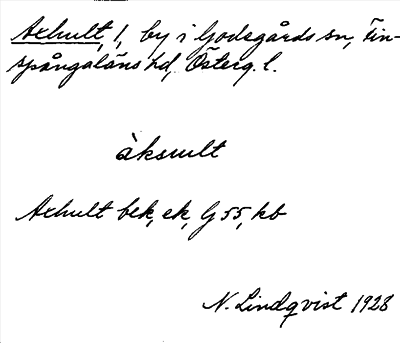 Axhult, 1, by i Godegårds sn, Fin-
spångaläns hd, Österg. l.
àksult
Axhult bek, ek, G 55, kb
N. Lindqvist 1928